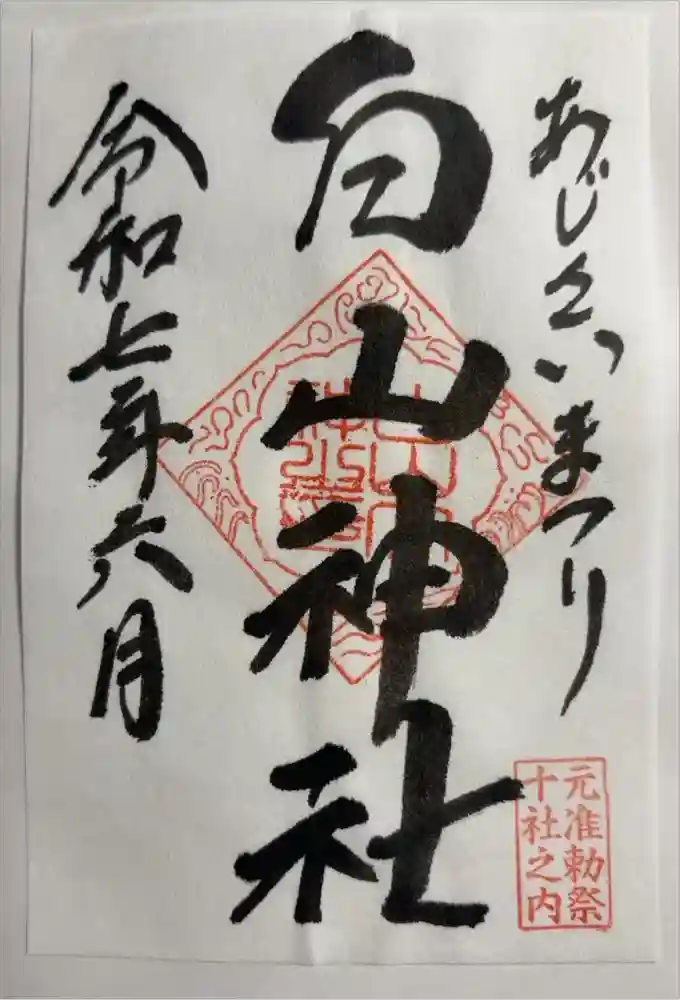 あじさいまつり
元准勅祭
十社之内
白山神社
令和七年六月